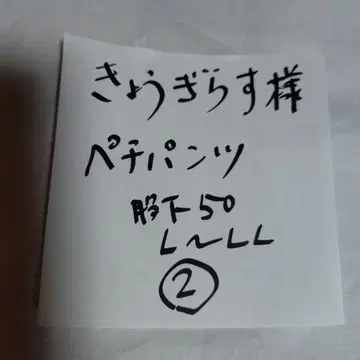 きょうぎらす様
ペチパンツ
股下50
L〜LL
②